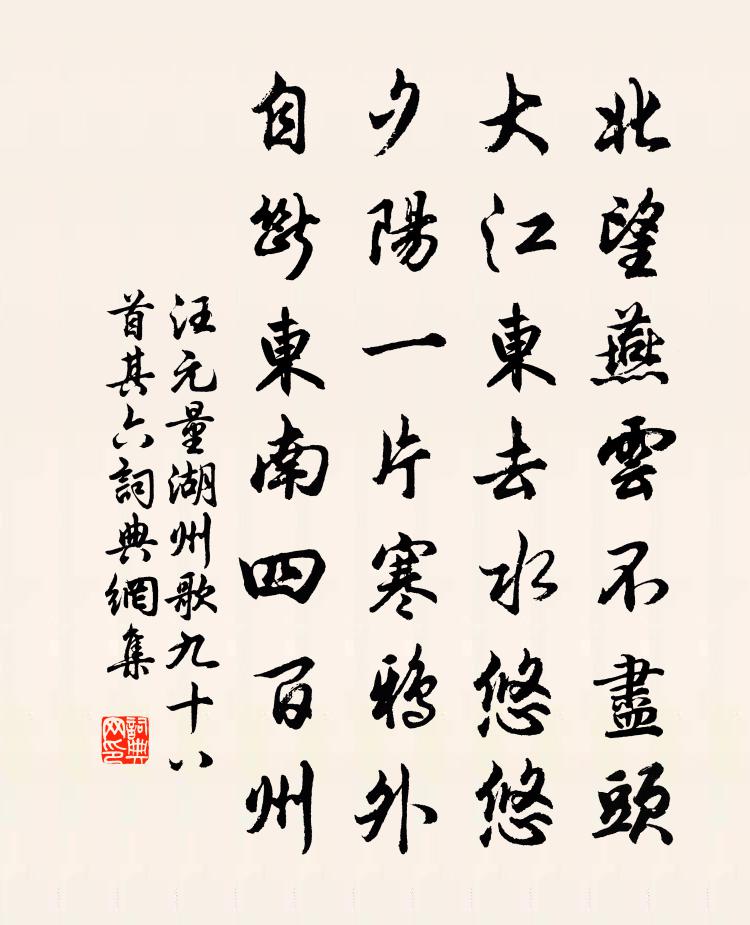 北望燕雲不盡頭
大江東去水悠悠
夕陽一片寒鴉外
自斷東南四百州
汪元量湖州歌九十八
首其六詞典網集
詞典
网印